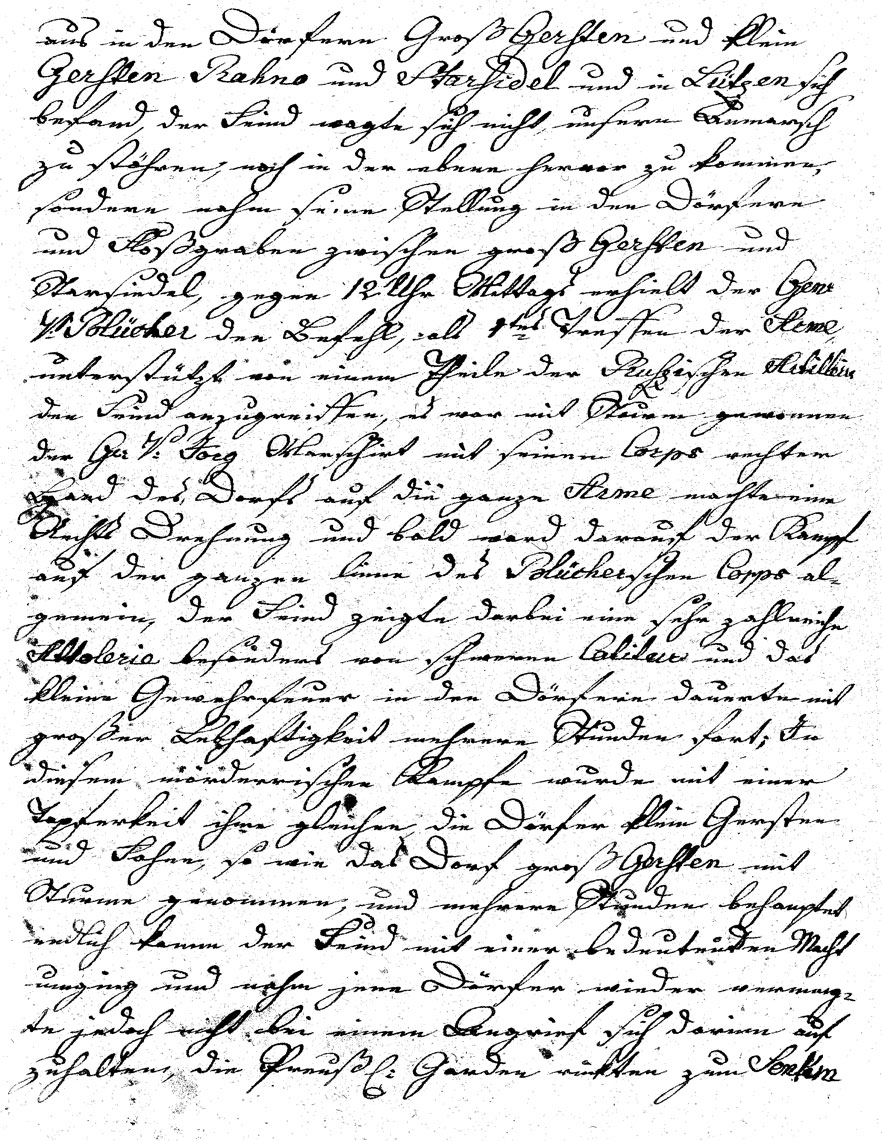 aus in den Dörfern Groß Gerschen und klein
Gerschen Rahno und Starsidel und in Lützen sich
befand, der Feind wagte sich nicht, unsern Anmarsch
zu stöhren, noch in der ebene hervor zu kommen,
sondern nahm seine Stellung in den Dörfern
und Floßgraben zwischen groß Gerschen und
Starsiedel, gegen 12 Uhr Mittags erhielt der Genr
V: Blücher den Befehl, als 1tes Treffen der Arme
unterstützt von einem Theile der Rußischen Artillerie
den Feind anzugreiffen, es war mit Sturm genommen
der Ge: V: Jorg Marschirt mit seinen Corps rechter
Hand des Dorfs auf die ganze Arme machte eine
Rechts Drehnung und bald ward darauf der Kampf
auf der ganzen linne des Blücherschen Corps al-
gemein, der Feind zeigte darbei eine sehr zahlreiche
besonders von schweren Caliber und das
kleine Gewehrfeuer in den Dörfern dauerte mit
großer Lebhaftigkeit mehrere Stunden fort; In
diesem mörderrischen Kampfe wurde mit einer
Tapferkeit ihne gleichen, die Dörfer klein Gerschen
und Rahne, so wie das Dorf groß Gerschen mit
Sturme genommen, und mehrere Stunden behauptet
endlich kamm der Feind mit einer bedeutenden Macht
umging und nahm jene Dörfer wieder vermog-
te jedoch nicht bei einem Angrief sich darinn auf
zuhalten, die Preuß: Garden rückten zum